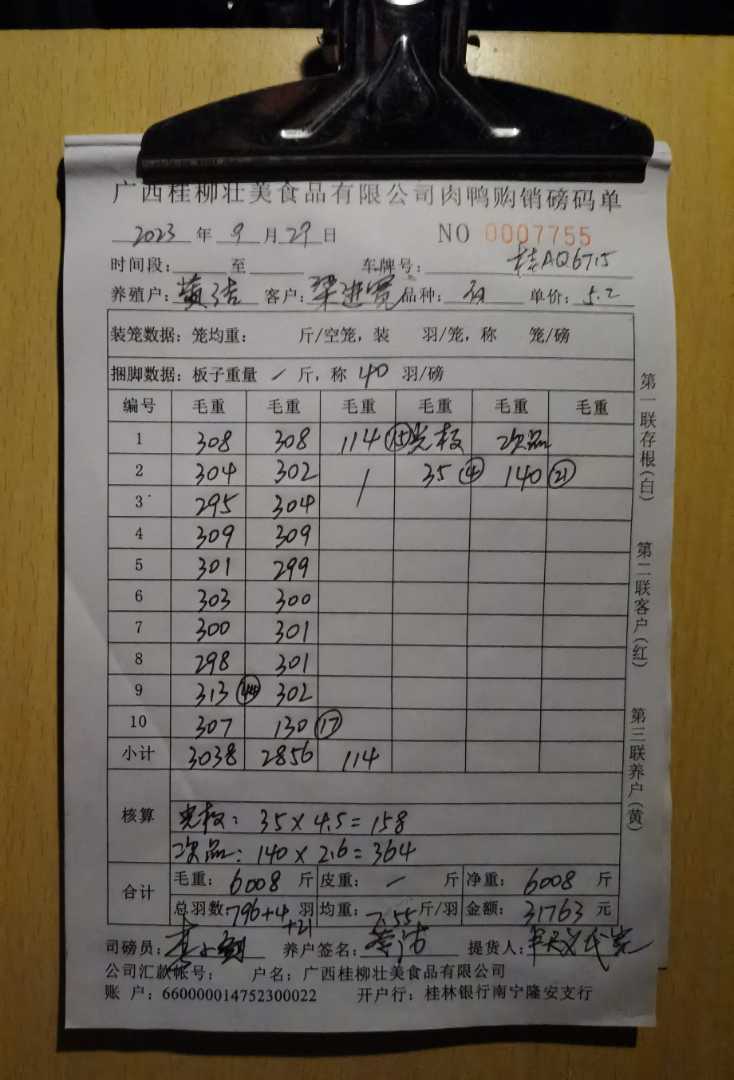 广西桂柳壮美食品有限公司肉鸭购销磅码单
2023 年 9 月 29 日 NO 0007755
时间段: 至 车牌号: 桂AQ6715
养殖户: 黄洁 客户: 梁进宽 品种: 单价: 5.2
装笼数据: 笼均重: 斤/空笼, 装 羽/笼, 称 笼/磅
捆脚数据: 板子重量 / 斤, 称 40 羽/磅
编号 毛重 毛重 毛重 毛重 毛重 毛重
1 308 308 114 ⑮ 光板 次品
2 304 302 / 35 ④ 140 ㉑
3 295 304
4 309 309
5 301 299
6 303 300
7 300 301
8 298 301
9 313 ㊹ 302
10 307 130 ⑰
小计 3038 2856 114
核算
光板: 35×4.5=158
次品: 140×2.6=364
合计
毛重: 6008 斤 皮重: / 斤 净重: 6008 斤
总羽数 796+4 羽 均重: 7.55 斤/羽 金额: 31763 元
+21
司磅员: 养户签名: 黄洁 提货人:
公司汇款帐号: 户名: 广西桂柳壮美食品有限公司
账 户: 660000014752300022 开户行: 桂林银行南宁隆安支行
第一联存根(白)
第二联客户(红)
第三联养户(黄)